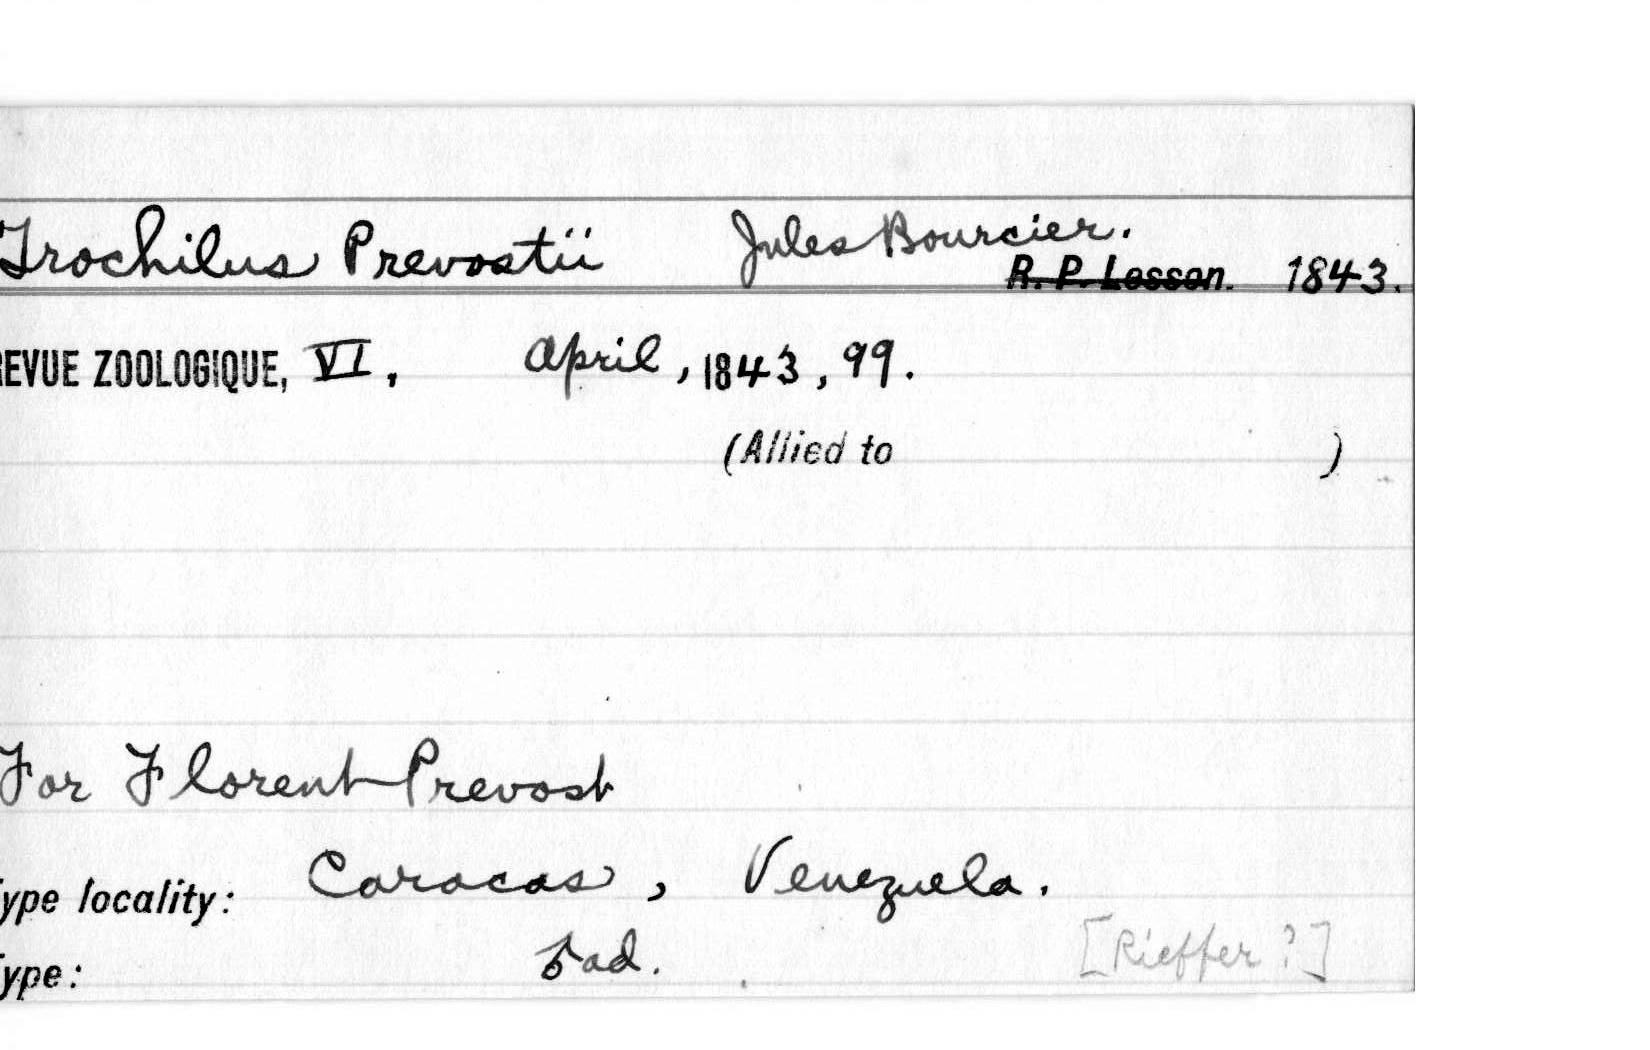 Trochilus Prevostii Jules Bourcier.
R. P. Lesson. 1843.
REVUE ZOOLOGIQUE, VI, April, 1843, 99.
(Allied to )
For Florent Prevost
Type locality: Caracas, Venezuela.
Type: ad. [Rieffer?]